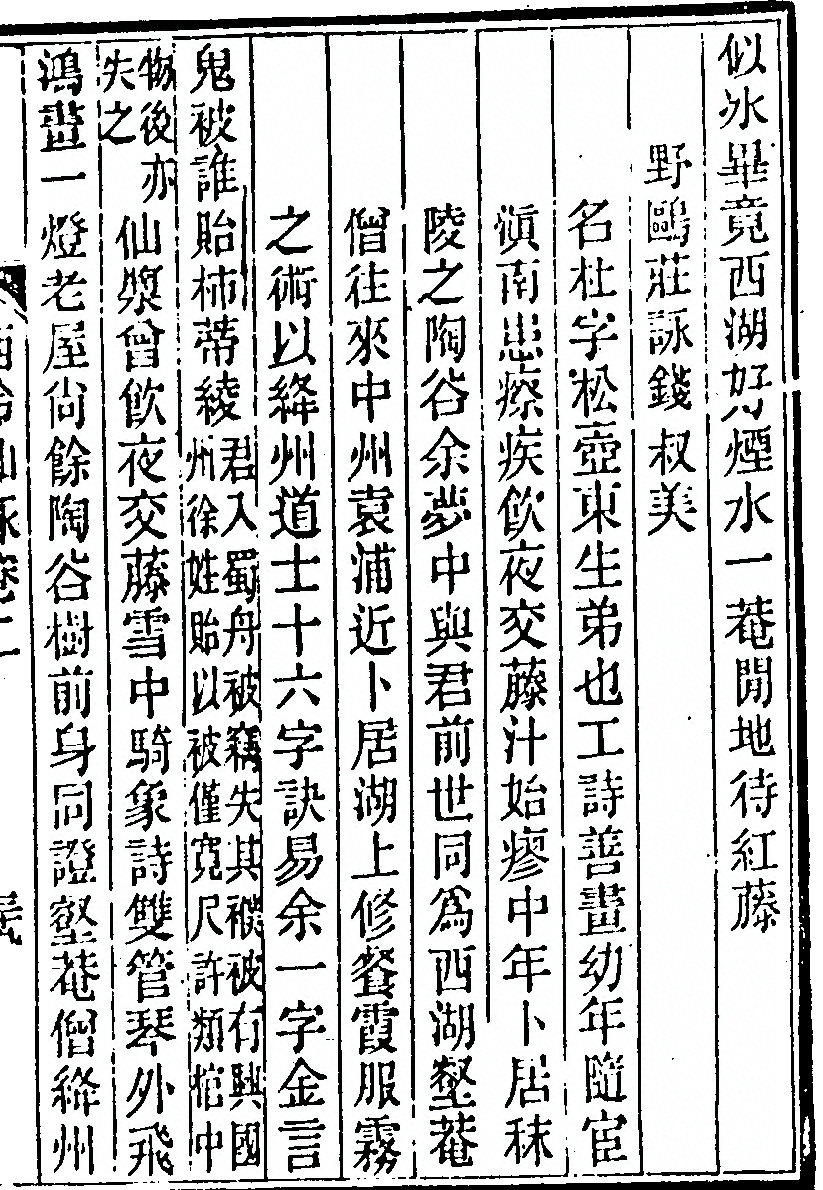 似氷畢竟西湖好煙水一菴閒地待紅藤
野鷗莊詠錢叔美
名杜字松壺東生弟也工詩善畫幼年隨宦
滇南患瘵疾飮夜交藤汁始瘳中年卜居秣
陵之陶谷余夢中與君前世同爲西湖壑菴
僧往來中州袁浦近卜居湖上修餐霞服霧
之術以絳州道士十六字訣易余一字金言
鬼被誰貽柿蒂綾君入蜀舟被竊失其襆被有興國
州徐姓貽以被僅寬尺許類棺中
物後亦
失之仙漿曾飮夜交藤雪中騎象詩雙管琴外飛
鴻畫一燈老屋尙餘陶谷樹前身同證壑菴僧絳州